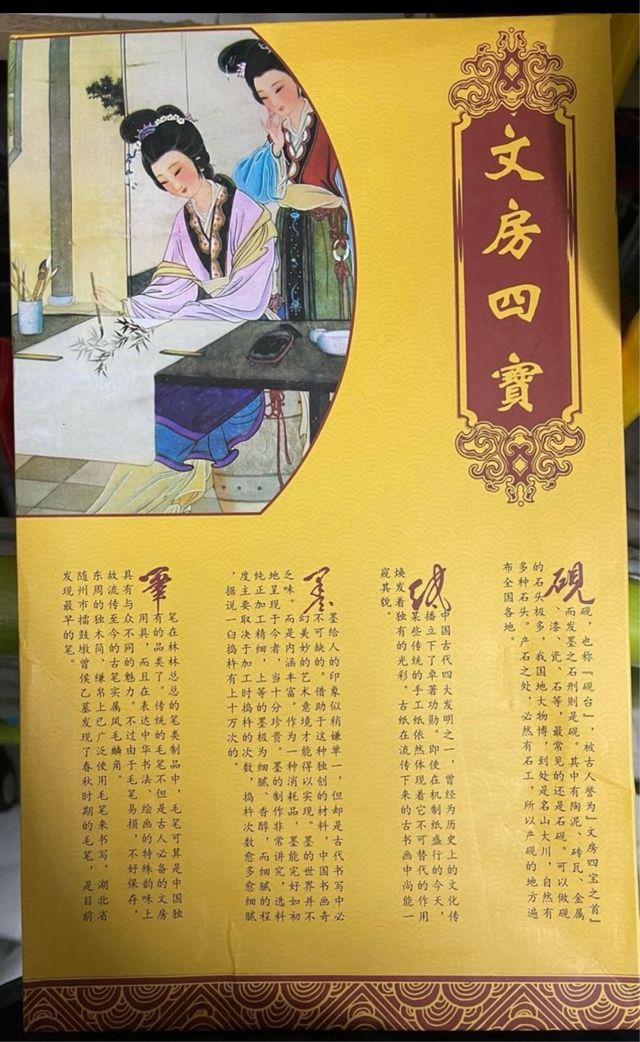 文房四寶
硯
砚，也称『砚台』，被古人誉为『文房四宝之首』
而发墨之石刑则是砚。其中有陶泥、砖瓦、金属
、漆、瓷、石等，最常见的还是石砚。可以做砚
的石头极多，我国地大物博，到处是名山大川，自然有
多种石头。产石之处，必然有石工，所以产砚的地方遍
布全国各地。
纸
中国古代四大发明之一，曾经为历史上的文化传
播立下了卓著功勋。即使在机制纸盛行的今天，
某些传统的手工纸依然体现着它不可替代的作用
焕发着独有的光彩。古纸在流传下来的古书画中尚能一
窥其貌。
墨
墨给人的印象似稍嫌单一，但却是古代书写中必
不可缺的。借助于这种独创的材料，中国书画奇
幻美妙的艺术意境才能得以实现。墨的世界并不
乏味。而是内涵丰富。作为一种消耗品，墨能完好如初
地呈现于今者，当十分珍贵。墨的制作非常讲究，选料
纯正加工精细，上等的墨极为细腻、香醇，而细腻的程
度主要取决于加工时捣杵的次数，捣杵次数愈多愈细腻
，据说一臼捣杵有上十万次的。
筆
笔在林林总总的笔类制品中，毛笔可算是中国独
有的品类了。传统的毛笔不但是古人必备的文房
用具，而且在表达中华书法、绘画的特殊韵味上
具有与众不同的魅力。不过由于毛笔易损，不好保存，
故流传至今的古笔实属凤毛麟角。
东周的独木简、缣帛上已广泛使用毛笔来书写。湖北省
随州市擂鼓墩曾侯乙墓发现了春秋时期的毛笔，是目前
发现最早的笔。